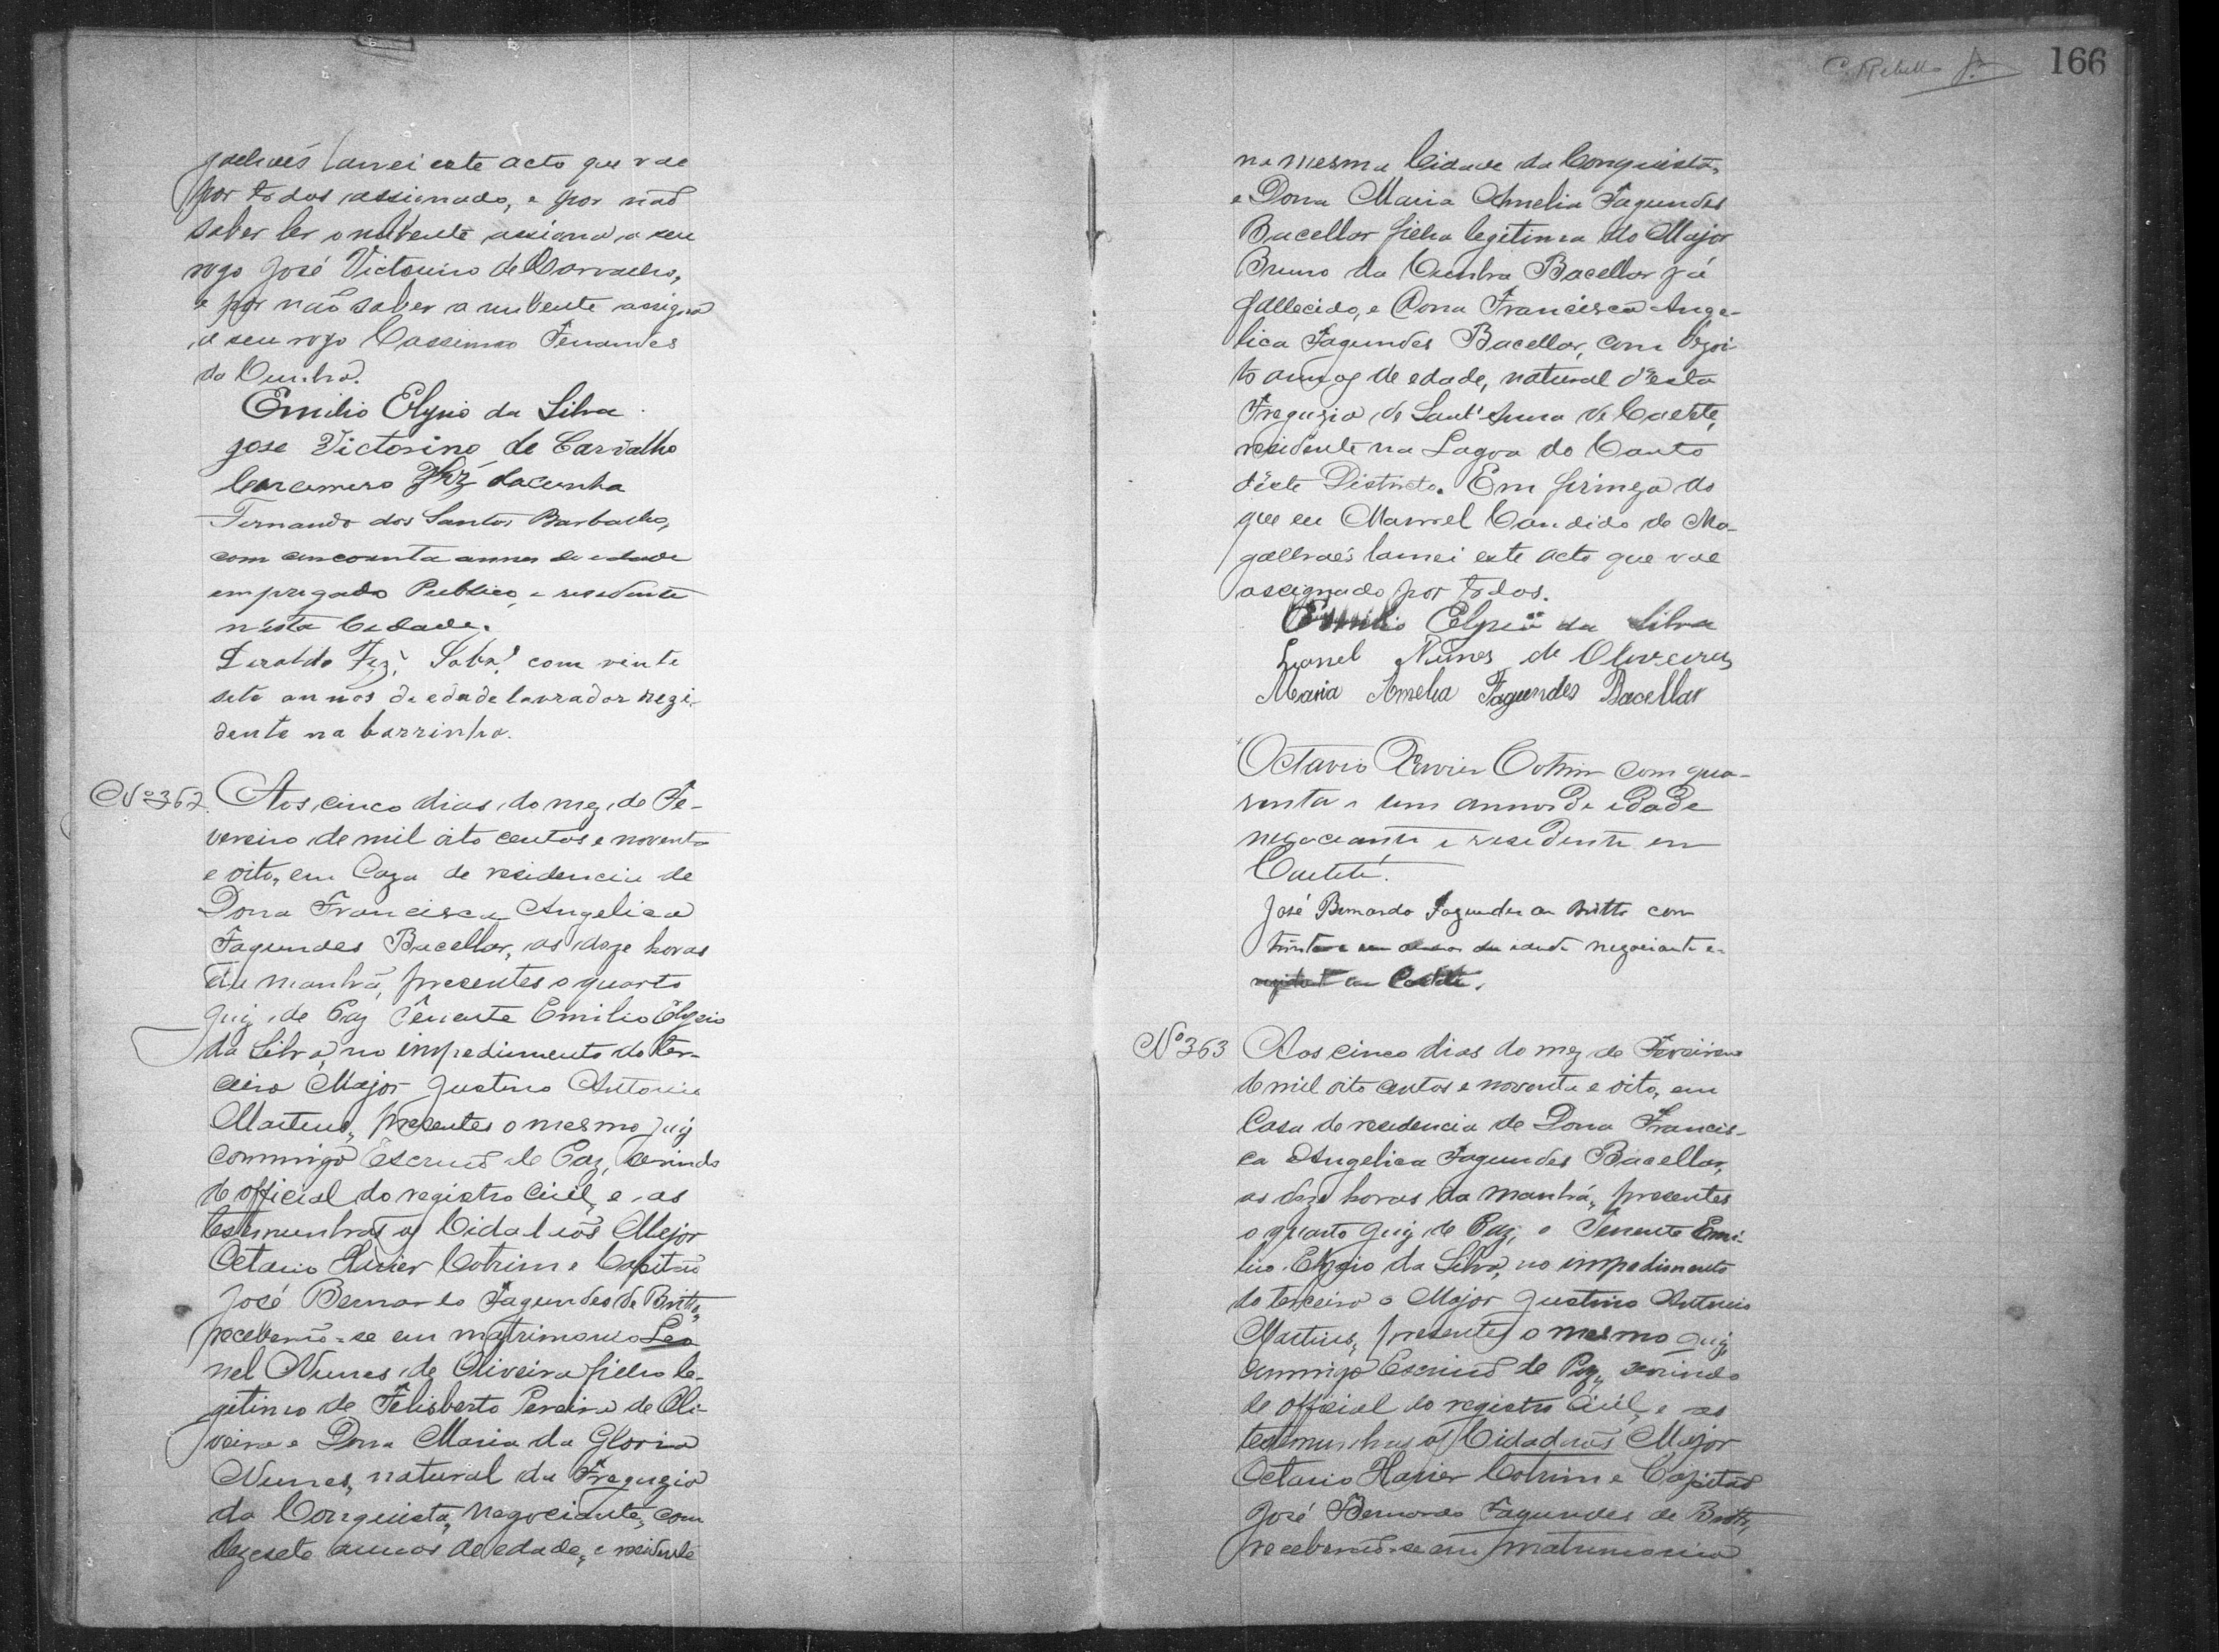 galhães lavrei este acto que vae
por todos assignado, e por não
saber ler o nubente assigna a seu
rogo José Victorino de Carvalho,
e por não saber a nubente assigna
a seu rogo Cassimiro Fernandes
da Cunha.
Emilio Elysio da Silva
jose Victorino de Carvalho
dacunha
Fernando dos Santos Barbalho,
com cincoenta annos de edade
empregado Publico, e residente
nesta Cidade.
com vinte
sete annos de edade lavrador rezi-
dente na barrinha.
Nº 362. Aos cinco dias do mez de Fe-
vereiro de mil oito centos e noventa
e oito, em Caza de residencia de
Dona Francisca Angelica
Fagundes Bacellar, as doze horas
da manhã, presentes o quarto
Juiz de Paz Tenente Emilio Elysio
da Silva, no impedimento do ter-
ceiro Major Justino Antonio
Martins, presentes o mesmo Juiz
commigo Escrivão de Paz, servindo
de official do registro Civil, e as
testemunhas os Cidadãos Major
Octavio Xavier Cotrim e Capitão
José Bernardo Fagundes de Britto,
receberão-se em matrimonio Leo
nel Nunes de Oliveira filho le-
gitimo de Felisberto Pereira de Oli-
veira e Dona Maria da Gloria
Nunes, natural da Freguzia
da Conquista, negociante, com
dezesete annos de edade, e residente
C. Rebello Jr. 166
na mesma Cidade da Conquista,
e Dona Maria Amelia Fagundes
Bacellar filha legitima do Major
Bruno da Cunha Bacellar já
fallecido, e Dona Francisca Ange-
lica Fagundes Bacellar, com dezoi-
to annos de edade, natural d'esta
Freguzia de Sant'Anna de Caeteté,
residente na Lagoa do Canto
d'este Districto. Em firmeza do
que eu Manoel Candido de Ma-
galhães lavrei este acto que vae
assignado por todos.
Emilio Elysio da Silva
Leonel Nunes de Oliveira
Maria Amelia Fagundes Bacellar
Octavio Xavier Cotrim com qua-
renta e um annos de edade
negociante e residente em
Caeteté.
José Bernardo Fagundes de Britto com
trinta e um annos de edade negociante e
rezidente em Caeteté.
Nº 363 Aos cinco dias do mez de Fevereiro
de mil oito centos e noventa e oito, em
Casa de residencia de Dona Francis-
ca Angelica Fagundes Bacellar,
as doze horas da manhã, presentes
o quarto Juiz de Paz, o Tenente Emi-
lio Elysio da Silva, no impedimento
do terceiro o Major Justino Antonio
Martins, presentes o mesmo Juiz
commigo Escrivão de Paz, servindo
de official do registro Civil, e as
testemunhas os Cidadãos Major
Octavio Xavier Cotrim e Capitão
José Bernardo Fagundes de Britto,
receberão-se em matrimonio